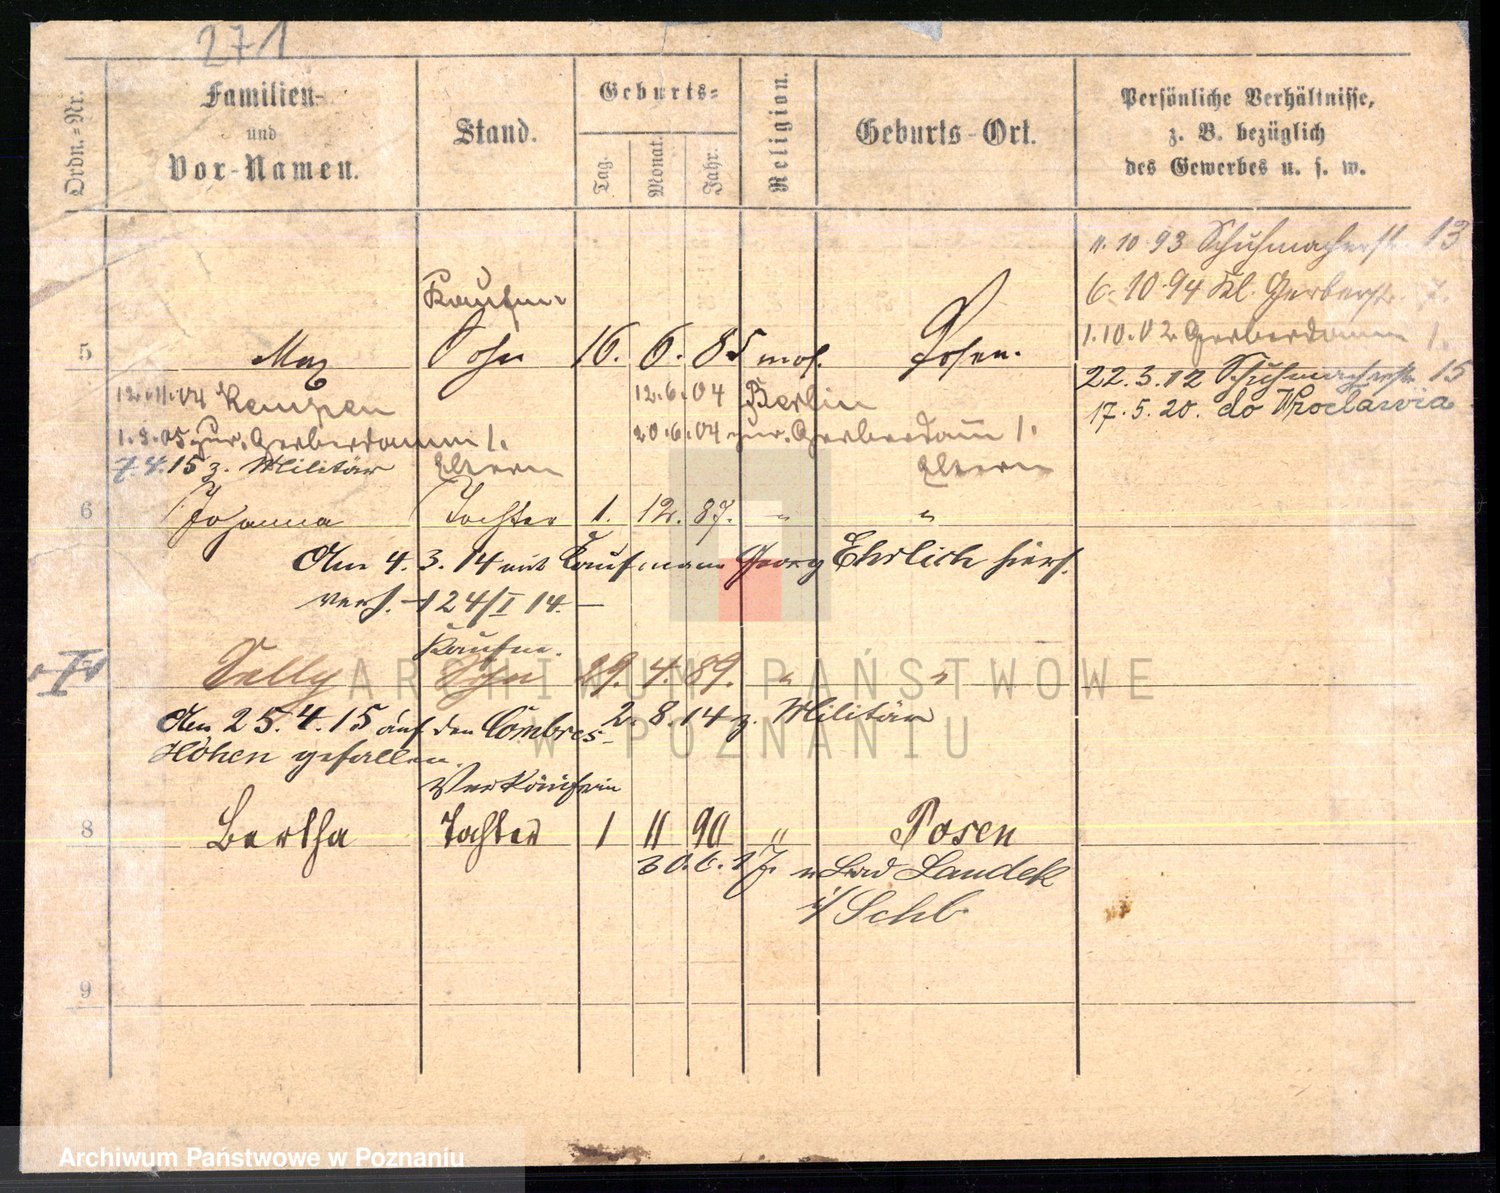 271
Ordn.-Nr.
Familien-
und
Vor-Namen.
Stand.
Geburts-
Tag.
Monat.
Jahr.
Religion.
Geburts-Ort.
Persönliche Verhältnisse,
z. B. bezüglich
des Gewerbes u. s. w.
11.10 93 Schuhmacherstr. 13
6.10.94 Kl. Gerberstr. 7.
1.10.02 Gerberdamm 1.
22.3.12 Schuhmacherstr. 15
17.5.20. do Wrocławia
Kaufm.
5 Max Sohn 16. 6. 85 mos. Posen.
12.11.04 Kempen 12.6.04 Berlin
1.8.05 zur. Gerberdamm 1. 20.6.04 zur. Gerberdam 1.
7.4.15 z. Militär Eltern Eltern
6 Johanna Tochter 1. 12. 87. " "
Am 4.3.14 mit Kaufmann Georg Ehrlich hier
verh. - 124/I 14. -
Kaufm.
Sally Sohn 29. 4. 89. " "
Am 25.4.15 auf den Combres- 2.8.14 z. Militär
Höhen gefallen.
Verkäuferin
8 Bertha Tochter 1 11 90 " Posen
30.6.17. n Bad Landek
i/ Schl.
9
ARCHIWUM PAŃSTWOWE
W POZNANIU
Archiwum Państwowe w Poznaniu